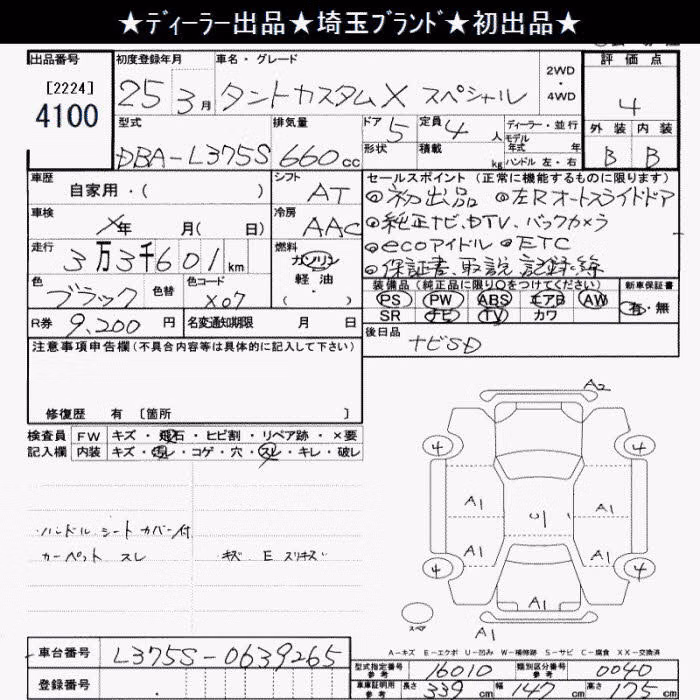 ★ディーラー出品★埼玉ブランド★初出品★
出品番号 [2224] 4100
初度登録年月 25 3月
車名・グレード タントカスタムX スペシャル
2WD・4WD
評価点 4
外装 内装
B B
型式 DBA-L375S
排気量 660cc
ドア 5 形状
定員 4人 積載 kg
ディーラー・並行
モデル年式 年
ハンドル 左・右
車歴 自家用・( )
シフト AT
車検 年 月( 日)
冷房 AAC
走行 3万3千601km
燃料 ガソリン 軽油 ( )
色 ブラック 色替
色コード X07
R券 9,200円
名変通知期限 月 日
セールスポイント(正常に機能するものに限ります)
◎初出品 ◎左Rオートスライドドア
◎純正ナビ、DTV、バックカメラ
◎ecoアイドル ◎ETC
◎保証書、取説、記録・簿
装備品(純正品に限り○をつけてください)
PS PW ABS エアB AW
SR ナビ TV カワ
新車保証書
有・無
後日品 ナビSD
注意事項申告欄(不具合内容等は具体的に記入して下さい)
修復歴 有 [箇所 ]
検査員記入欄
FW キズ・飛石・ヒビ割・リペア跡・×要
内装 キズ・汚レ・コゲ・穴・スレ・キレ・破レ
ハンドル シート カバー付
カーペット スレ キズ E スリキズ
A2
4 4
A1 A1
U1
A1 A1
4 4
A1
スペア
A1
A-キズ E-エクボ U-凹み W-補修跡 S-サビ C-腐食 XX-交換済
車台番号 L375S-0639265
登録番号
型式指定番号 参考 16010
類別区分番号 参考 0040
車庫証明用 参考 長さ 339cm 幅 147cm 高さ 175cm